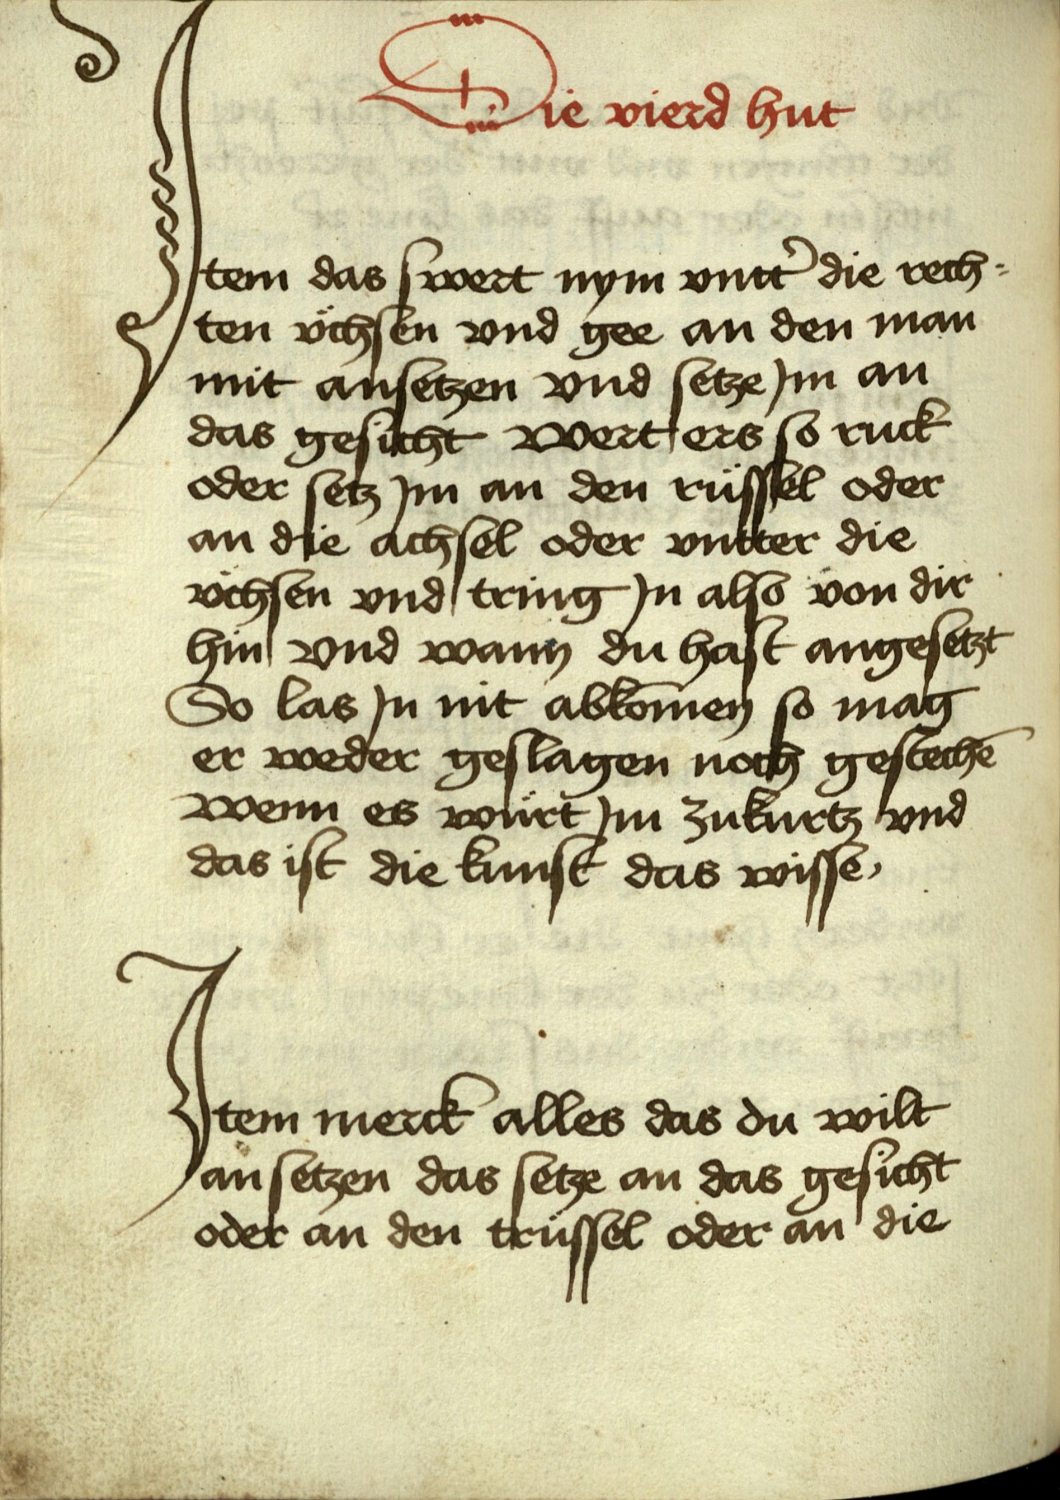 Die vierd hut
Item das swert nym vntt' die rech-
ten vͤchsen vnd gee an den man
mit ansetzen vnd setze Jm an
das gesicht wert ers so ruck
oder setz Jm an den rüssel oder
an die achsel oder vntter die
vͤchsen vnd tring Jn also von dir
hin vnd wann du hast angesetzt
So las Jn nit abkom̄en so mag
er weder geslagen noch gestechē
wenn es würt Jm zukurtz vnd
das ist die kunst das wisse,
Item merck alles das du wilt
an setzen das setze an das gesicht
oder an den trüssel oder an die